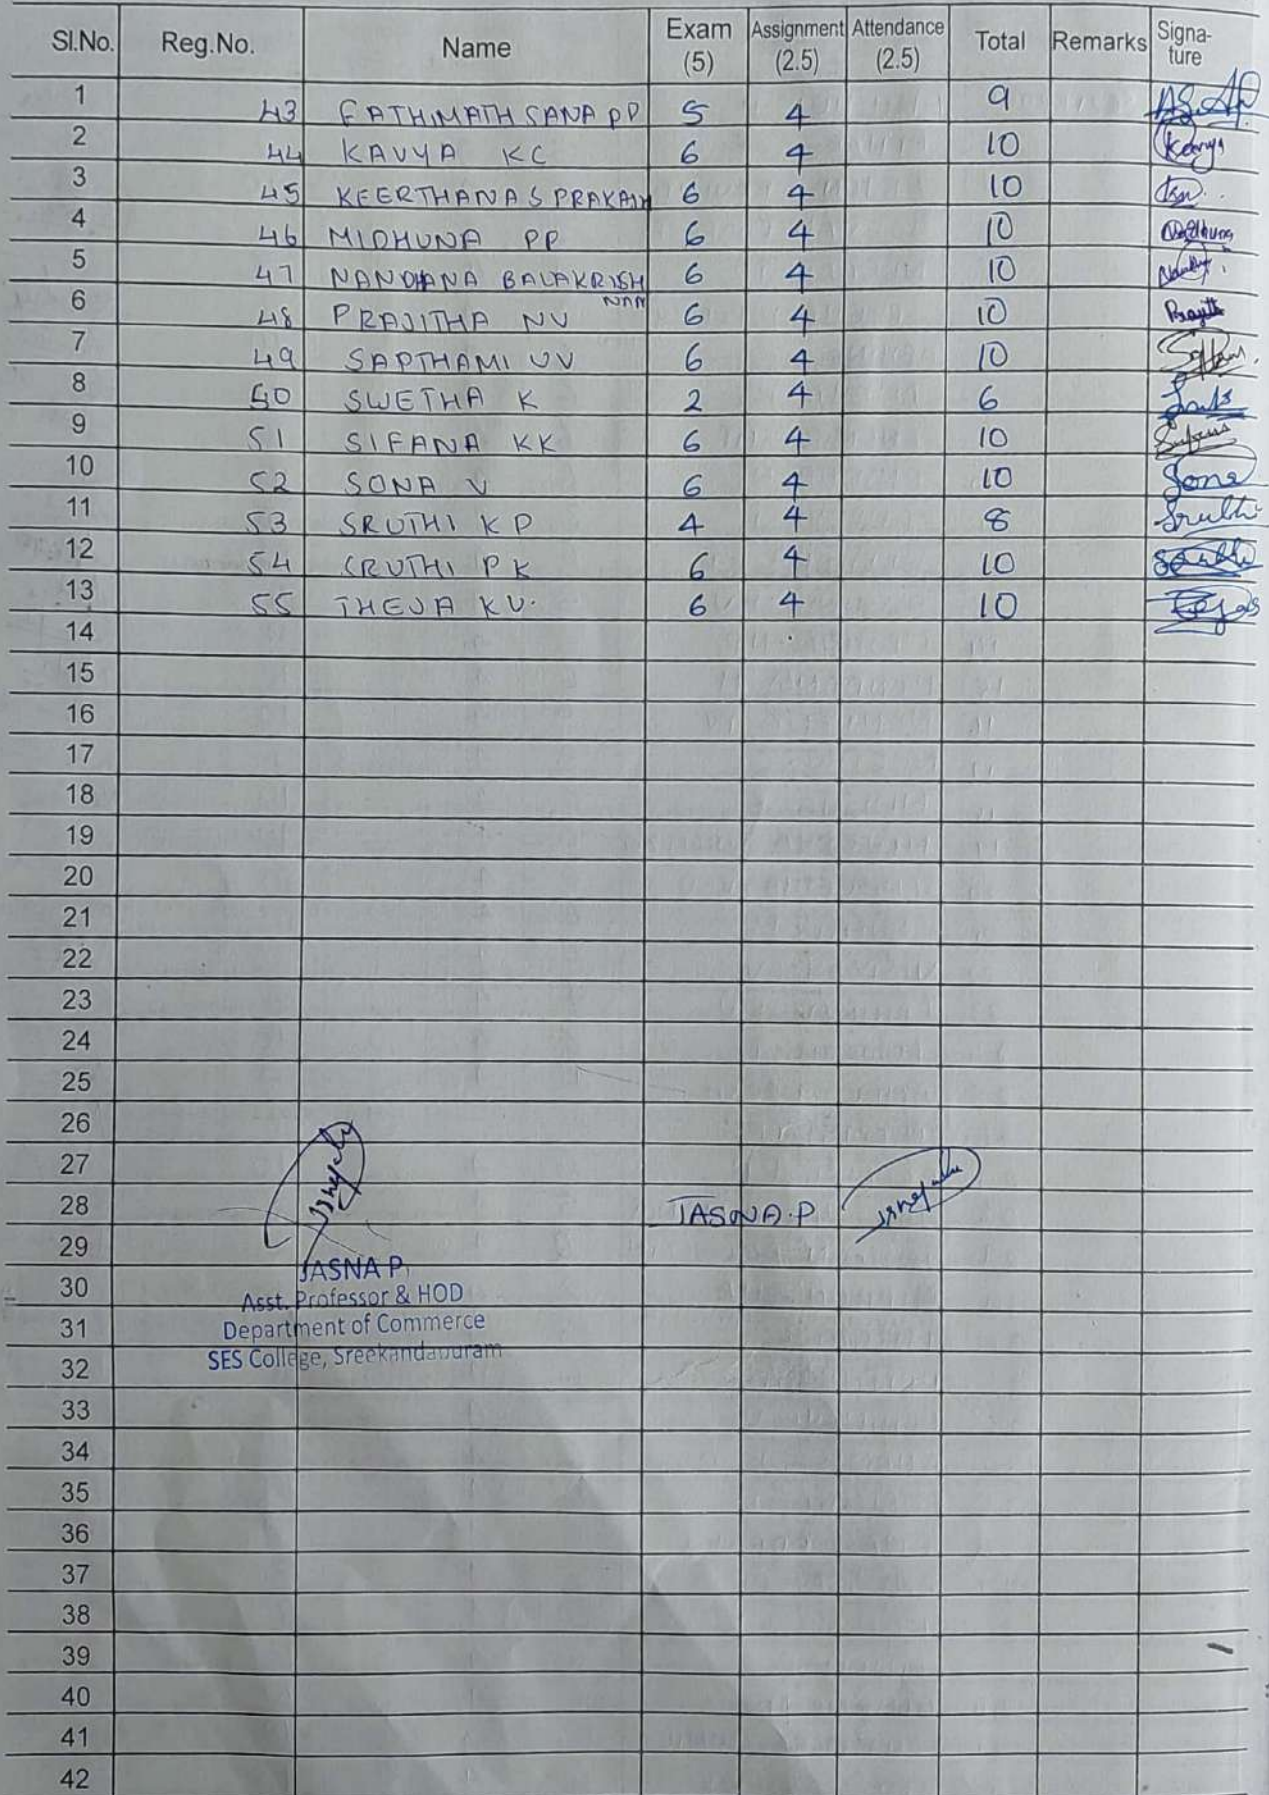 Sl.No. Reg.No. Name Exam (5) Assignment (2.5) Attendance (2.5) Total Remarks Signa-ture
1 43 FATHIMATH SANA PP 5 4 9
2 44 KAVYA KC 6 4 10 Kavya
3 45 KEERTHANA S PRAKASH 6 4 10
4 46 MIDHUNA PP 6 4 10 Midhuna
5 47 NANDHANA BALAKRISHNAN 6 4 10
6 48 PRAJITHA NV 6 4 10
7 49 SAPTHAMI VV 6 4 10
8 50 SWETHA K 2 4 6
9 51 SIFANA KK 6 4 10
10 52 SONA V 6 4 10 Sona
11 53 SRUTHI KP 4 4 8 Sruthi
12 54 SRUTHI PK 6 4 10
13 55 THEJA KV. 6 4 10
14
15
16
17
18
19
20
21
22
23
24
25
26
27
28 JASNA.P
29
JASNA P.
30
Asst. Professor & HOD
31
Department of Commerce
SES College, Sreekandapuram
32
33
34
35
36
37
38
39
40
41
42